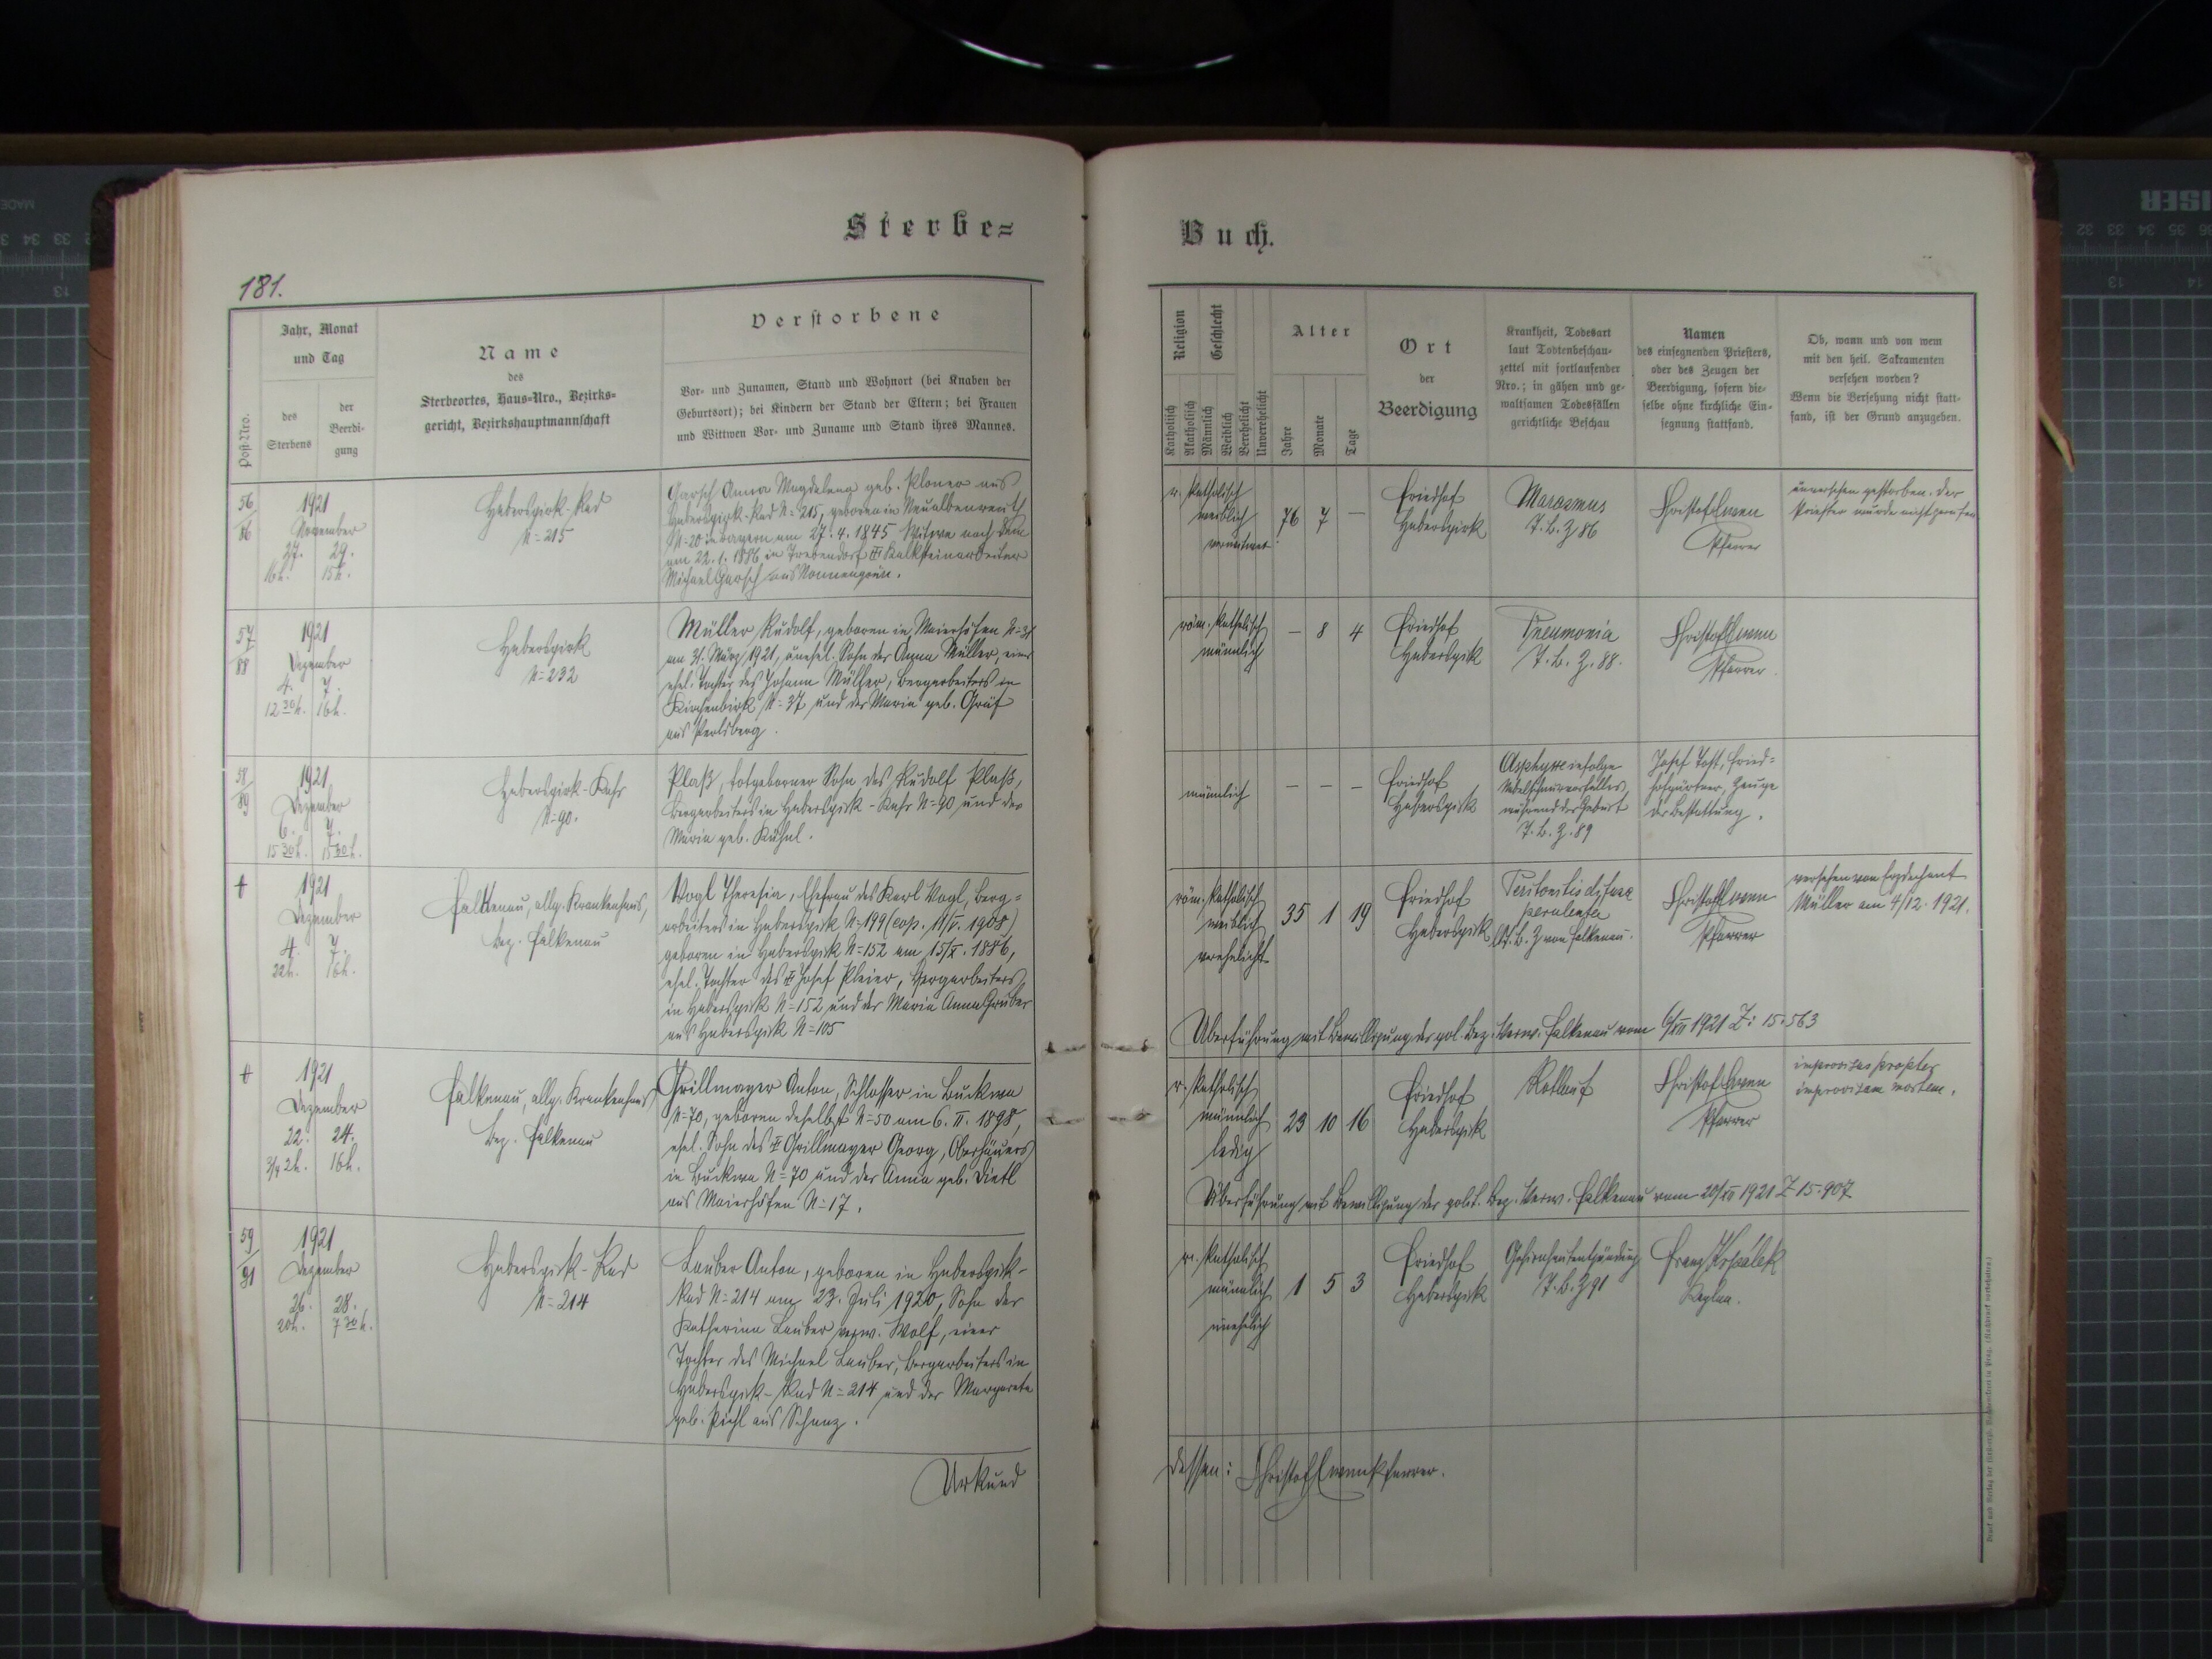 Sterbe=
Buch.
181.
Post-Nro.
Jahr, Monat
und Tag
des
Sterbens
der
Beerdi-
gung
Name
des
Sterbeortes, Haus-Nro., Bezirks-
gericht, Bezirkshauptmannschaft
Verstorbene
Vor- und Zunamen, Stand und Wohnort (bei Knaben der
Geburtsort); bei Kindern der Stand der Eltern; bei Frauen
und Wittwen Vor- und Zuname und Stand ihres Mannes.
Religion
Katholisch
Akatholisch
Geschlecht
Männlich
Weiblich
Verehelicht
Unverehelicht
Alter
Jahre
Monate
Tage
Ort
der
Beerdigung
Krankheit, Todesart
laut Todtenbeschau-
zettel mit fortlaufender
Nro.; in gähen und ge-
waltsamen Todesfällen
gerichtliche Beschau
Namen
des einsegnenden Priesters,
oder des Zeugen der
Beerdigung, sofern die-
selbe ohne kirchliche Ein-
segnung stattfand.
Ob, wann und von wem
mit den heil. Sakramenten
versehen worden?
Wenn die Versehung nicht statt-
fand, ist der Grund anzugeben.
56
86
1921
November
27. 29.
16h. 15h.
Haberspirk-Rad
N=215
Garsch Anna Magdalena geb. Ploner aus
Haberspirk-Rad N=215, geboren in Neualbenreuth
N=20 in Bayern am 27.4.1845 Witwe nach dem
am 22.1.1886 in Trebendorf Kalksteinarbeiter
Michael Garsch aus Nonnengrün.
r. katholisch
weiblich
verwitwet
76 7 —
Friedhof
Haberspirk
Marasmus
T.B.Z 86
Christof
Pfarrer
unversehen gestorben. Der
Priester wurde nicht gerufen
57
88
1921
Dezember
4. 7.
12 30 h. 16h.
Haberspirk
N=232
Müller Rudolf, geboren in Maierhöfen N=31
am 31. März 1921, unehel. Sohn der Anna Müller, einer
ehel. Tochter des Johann Müller, Bergarbeiters in
Kirchenbirk N=37 und der Maria geb. Gräf
aus Perlsberg.
röm. katholisch
männlich
— 8 4
Friedhof
Haberspirk
Pneumonia
T.B.Z.88.
Christof
Pfarrer.
58
89
1921
Dezember
6. 7.
15 30 h. 15 30 h.
Haberspirk-Kahr
N=90.
Plaß, totgeborner Sohn des Rudolf Plaß,
Bergarbeiters in Haberspirk-Kahr N=90 und der
Maria geb. Kühnl.
männlich
— — —
Friedhof
Haberspirk
Asphyxie infolge
Nabelschnurvorfalles
während der Geburt
T.B.Z.89
Josef Tost, Fried=
hofgärtner, Zeuge
der Bestattung.
†
1921
Dezember
4. 7.
22h. 16h.
Falkenau, allg. Krankenhaus,
Bez. Falkenau
Vogl Theresia, Ehefrau des Karl Vogl, Berg=
arbeiters in Haberspirk N=199 (cop. 11/V. 1908)
geboren in Haberspirk N=152 am 15/X. 1886,
ehel. Tochter des Josef Pleier, Bergarbeiters
in Haberspirk N=152 und der Maria Anna Gruber
aus Haberspirk N=105
röm. katholisch
weiblich
verehelicht
35 1 19
Friedhof
Haberspirk
Peritonitis difuse
T.B.Z von Falkenau.
Christof
Pfarrer
versehen von Erzdechant
Müller am 4/12. 1921.
Überführung mit Bewilligung der pol. Bez. Verw. Falkenau vom 6/XII 1921 Z: 15.563
†
1921
Dezember
22. 24.
3/4 2h. 16h.
Falkenau, allg. Krankenhaus
Bez. Falkenau
Grillmayer Anton, Schlosser in Buckwa
N=70, geboren daselbst N=50 am 6. II. 1898,
ehel. Sohn des Grillmayer Georg, Oberhäuers
in Buckwa N=70 und der Anna geb. Dietl
aus Maierhöfen N=17.
r. katholisch
männlich
ledig
23 10 16
Friedhof
Haberspirk
Rotlauf
Christof
Pfarrer
improvisus propter
improvisam mortem.
Überführung mit Bewilligung der polit. Bez. Verw. Falkenau vom 20/XII 1921 Z 15.907
59
91
1921
Dezember
26. 28.
20h. 7 30 h.
Haberspirk-Rad
N=214
Lauber Anton, geboren in Haberspirk-
Rad N=214 am 23. Juli 1920, Sohn der
Katharina Lauber verw. Wolf, einer
Tochter des Michael Lauber, Bergarbeiters in
Haberspirk-Rad N=214 und der Margareta
geb. Pichl aus Schanz.
r. katholisch
männlich
unehelich
1 5 3
Friedhof
Haberspirk
Gehirnhautentzündung
T.B.Z 91
Franz
Kaplan.
Urkund
dessen: Christof Pfarrer.